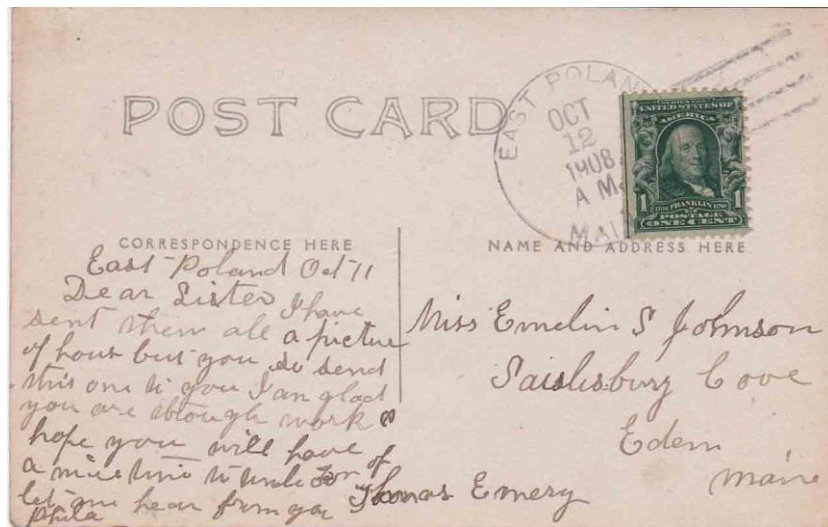 POST CARD
EAST POLAN
OCT
12
1908
A M.
MAI
UNITED STATES OF
AMERICA
1 FRANKLIN 1
POSTAGE
ONE CENT
CORRESPONDENCE HERE
East Poland Oct 11
Dear Sister I have
sent them all a picture
of hous but you so send
this one to you I am glad
you are through work
hope you will have
a nice time to uncle
let me hear from you
Phila
NAME AND ADDRESS HERE
Miss Emelin S Johnson
Saislisbury Cove
Eden
Maine
Thomas Emery